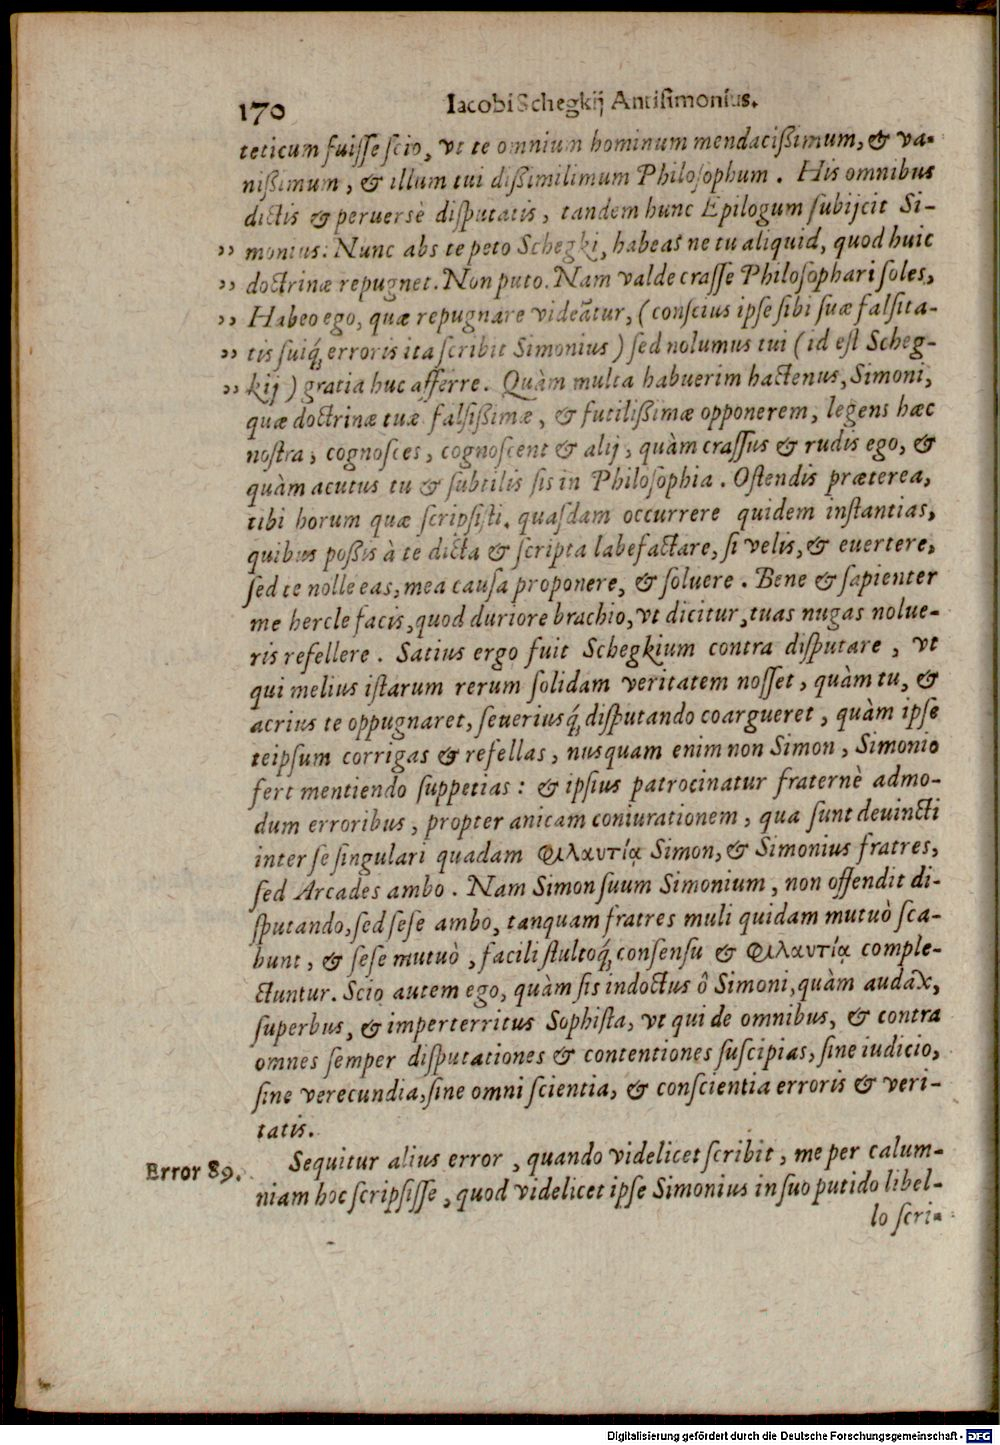 170 Iacobi Schegkij Antisimonius.
teticum fuisse scio, vt te omnium hominum mendacißimum, & va-
nißimum, & illum tui dißimilimum Philosophum. His omnibus
dictis & peruersè disputatis, tandem hunc Epilogum subijcit Si-
,, monius: Nunc abs te peto Schegki, habeas ne tu aliquid, quod huic
,, doctrinæ repugnet. Non puto. Nam valde crasse Philosophari soles,
,, Habeo ego, quæ repugnare videātur, (conscius ipse sibi suæ falsita-
,, tis suiq́; erroris ita scribit Simonius) sed nolumus tui (id est Scheg-
,, kij) gratia huc afferre. Quàm multa habuerim hactenus, Simoni,
quæ doctrinæ tuæ falsißimæ, & futilißimæ opponerem, legens hæc
nostra, cognosces, cognoscent & alij, quàm crassus & rudis ego, &
quàm acutus tu & subtilis sis in Philosophia. Ostendis præterea,
tibi horum quæ scripsisti, quasdam occurrere quidem instantias,
quibus poßis à te dicta & scripta labefactare, si velis, & euertere,
sed te nolle eas, mea causa proponere, & soluere. Bene & sapienter
me hercle facis, quod duriore brachio, vt dicitur, tuas nugas nolue-
ris refellere. Satius ergo fuit Schegkium contra disputare, vt
qui melius istarum rerum solidam veritatem nosset, quàm tu, &
acrius te oppugnaret, seueriusq́; disputando coargueret, quàm ipse
teipsum corrigas & refellas, nusquam enim non Simon, Simonio
fert mentiendo suppetias: & ipsius patrocinatur fraternè admo-
dum erroribus, propter anicam coniurationem, qua sunt deuincti
inter se singulari quadam Φιλαυτίᾳ Simon, & Simonius fratres,
sed Arcades ambo. Nam Simon suum Simonium, non offendit di-
sputando, sed sese ambo, tanquam fratres muli quidam mutuò sca-
bunt, & sese mutuò, facili stultoq́; consensu & Φιλαυτίᾳ comple-
ctuntur. Scio autem ego, quàm sis indoctus ô Simoni, quàm audax,
superbus, & imperterritus Sophista, vt qui de omnibus, & contra
omnes semper disputationes & contentiones suscipias, sine iudicio,
sine verecundia, sine omni scientia, & conscientia erroris & veri-
tatis.
Error 89. Sequitur alius error, quando videlicet scribit, me per calum-
niam hoc scripsisse, quod videlicet ipse Simonius in suo putido libel-
lo scri-
Digitalisierung gefördert durch die Deutsche Forschungsgemeinschaft - DFG